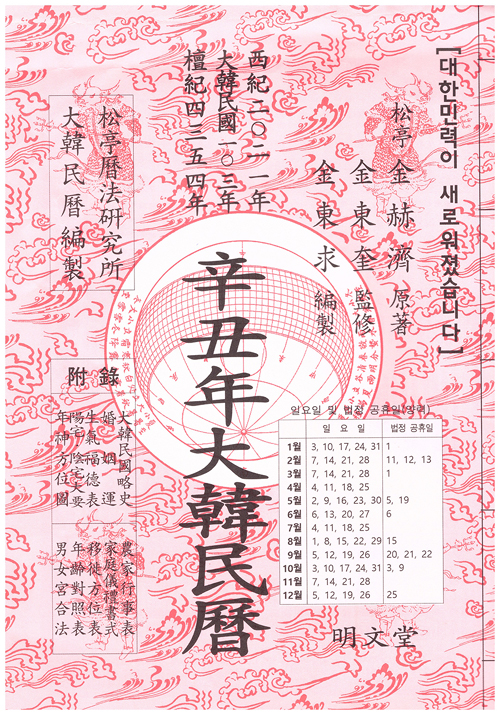 [대한민력이 새로워졌습니다]
松亭 金赫濟 原著
金東奎 監修
金東求 編製
西紀二〇二一年
大韓民國一〇三年
檀紀四三五四年
松亭曆法硏究所
大韓民曆編製
辛丑年大韓民曆
附錄
大韓民國略史
婚姻運
生氣福德表
陽宅陰宅大要
年神方位圖
農家行事表
家庭儀禮書式
移徙方位表
年齡對照表
男女宮合法
일요일 및 법정 공휴일(양력)
일 요 일 법정 공휴일
1월 3, 10, 17, 24, 31 1
2월 7, 14, 21, 28 11, 12, 13
3월 7, 14, 21, 28 1
4월 4, 11, 18, 25
5월 2, 9, 16, 23, 30 5, 19
6월 6, 13, 20, 27 6
7월 4, 11, 18, 25
8월 1, 8, 15, 22, 29 15
9월 5, 12, 19, 26 20, 21, 22
10월 3, 10, 17, 24, 31 3, 9
11월 7, 14, 21, 28
12월 5, 12, 19, 26 25
明文堂